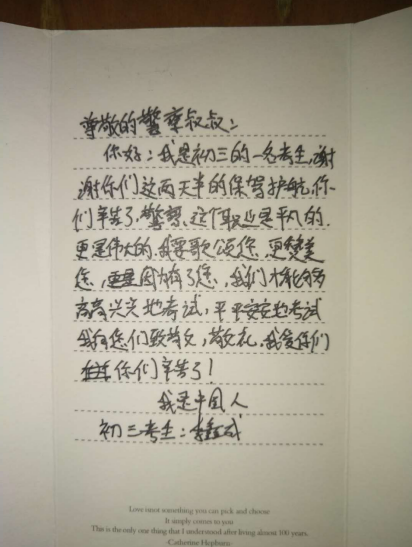 尊敬的警察叔叔：
你好：我是初三的一名考生，谢
谢你们这两天半的保驾护航，你
们辛苦了，警察、这个职业是平凡的，
更是伟大的，我要歌颂您、更赞美
您，更是因为有了您，我们才能够
高高兴兴地考试，平平安安地考试
我向您们致敬，敬礼，我爱你们
你们辛苦了！
我是中国人
初三考生：
Love isnt something you can pick and choose
It simply comes to you
This is the only one thing that I understood after living almost 100 years.
-Catherine Hepburn-